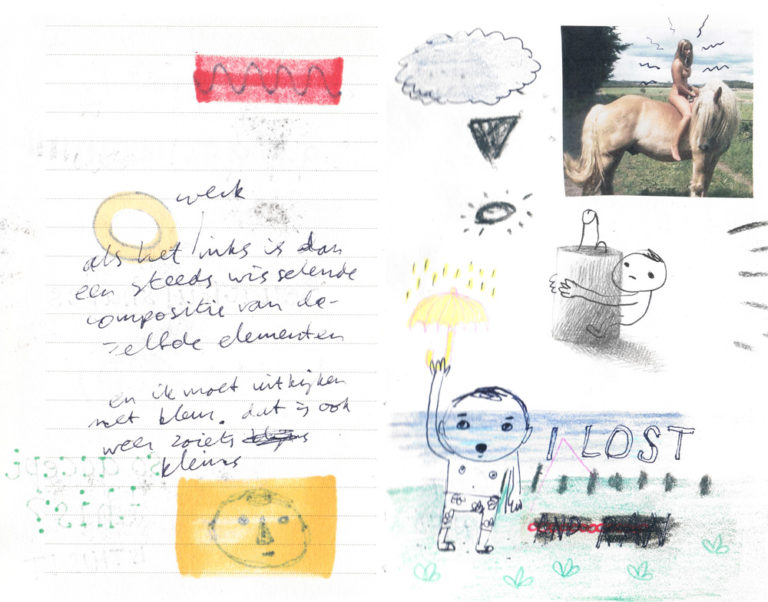 werk
als het links is dan
een steeds wisselende
compositie van de-
zelfde elementen
en ik moet uitkijken
met kleur. dat is ook
weer zoiets
kleins
I LOST